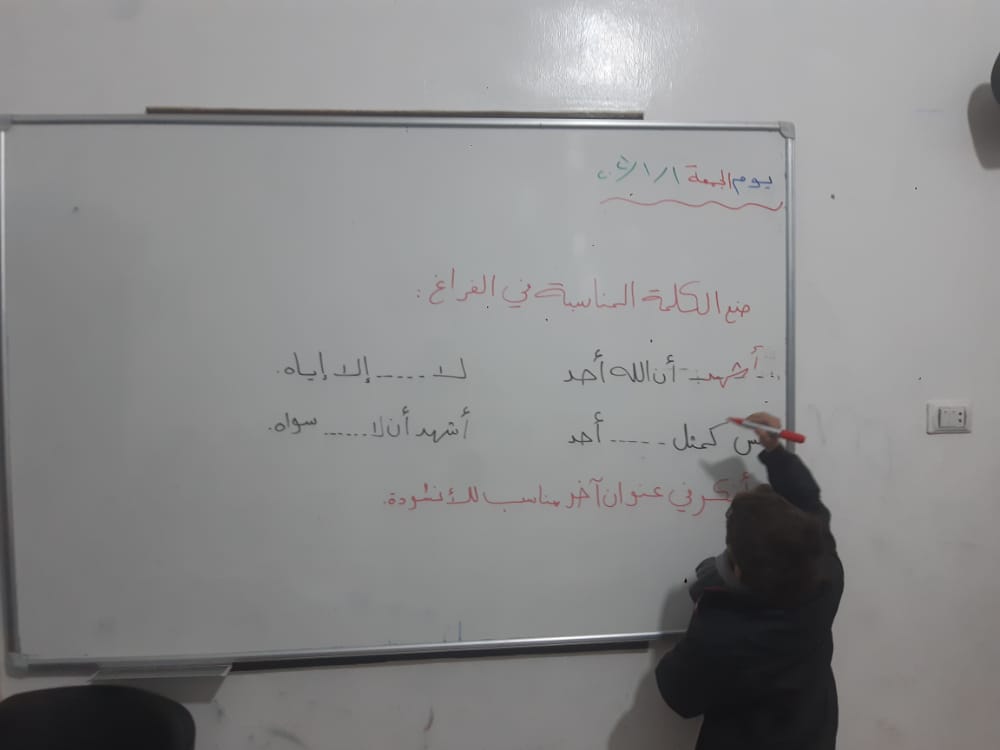 يوم الجمعة ١/١
ضع الكلمة المناسبة في الفراغ :
أشهد أن الله أحد لا ..... إلا إياه.
كمثل ..... أحد أشهد أن لا ...... سواه.
في عنوان آخر مناسب للأنشودة.